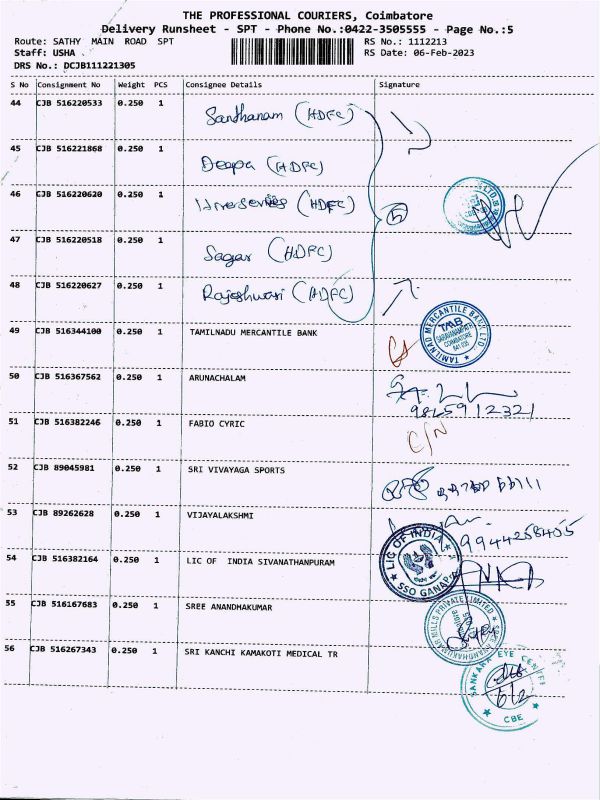 THE PROFESSIONAL COURIERS, Coimbatore
Delivery Runsheet - SPT - Phone No.:0422-3505555 - Page No.:5
Route: SATHY MAIN ROAD SPT RS No.: 1112213
Staff: USHA RS Date: 06-Feb-2023
DRS No.: DCJB111221305
S No Consignment No Weight PCS Consignee Details Signature
44 CJB 516220533 0.250 1 Santhanam (HDFC)
45 CJB 516221868 0.250 1 Deepa (HDFC)
46 CJB 516220620 0.250 1 (HDFC)
5
47 CJB 516220518 0.250 1 Sagar (HDFC)
48 CJB 516220627 0.250 1 Rajeshwari (HDFC)
49 CJB 516344100 0.250 1 TAMILNADU MERCANTILE BANK
TAMILNAD MERCANTILE BANK LTD
TMB
COIMBATORE
50 CJB 516367562 0.250 1 ARUNACHALAM
9825912321
51 CJB 516382246 0.250 1 FABIO CYRIC C/N
52 CJB 89045981 0.250 1 SRI VIVAYAGA SPORTS
53 CJB 89262628 0.250 1 VIJAYALAKSHMI
9944258455
54 CJB 516382164 0.250 1 LIC OF INDIA SIVANATHANPURAM
LIC OF INDIA
SSO GANAPA
55 CJB 516167683 0.250 1 SREE ANANDHAKUMAR
MILLS PRIVATE LIMITED
56 CJB 516267343 0.250 1 SRI KANCHI KAMAKOTI MEDICAL TR
SANKARA EYE CENTRE
6/2
CBE